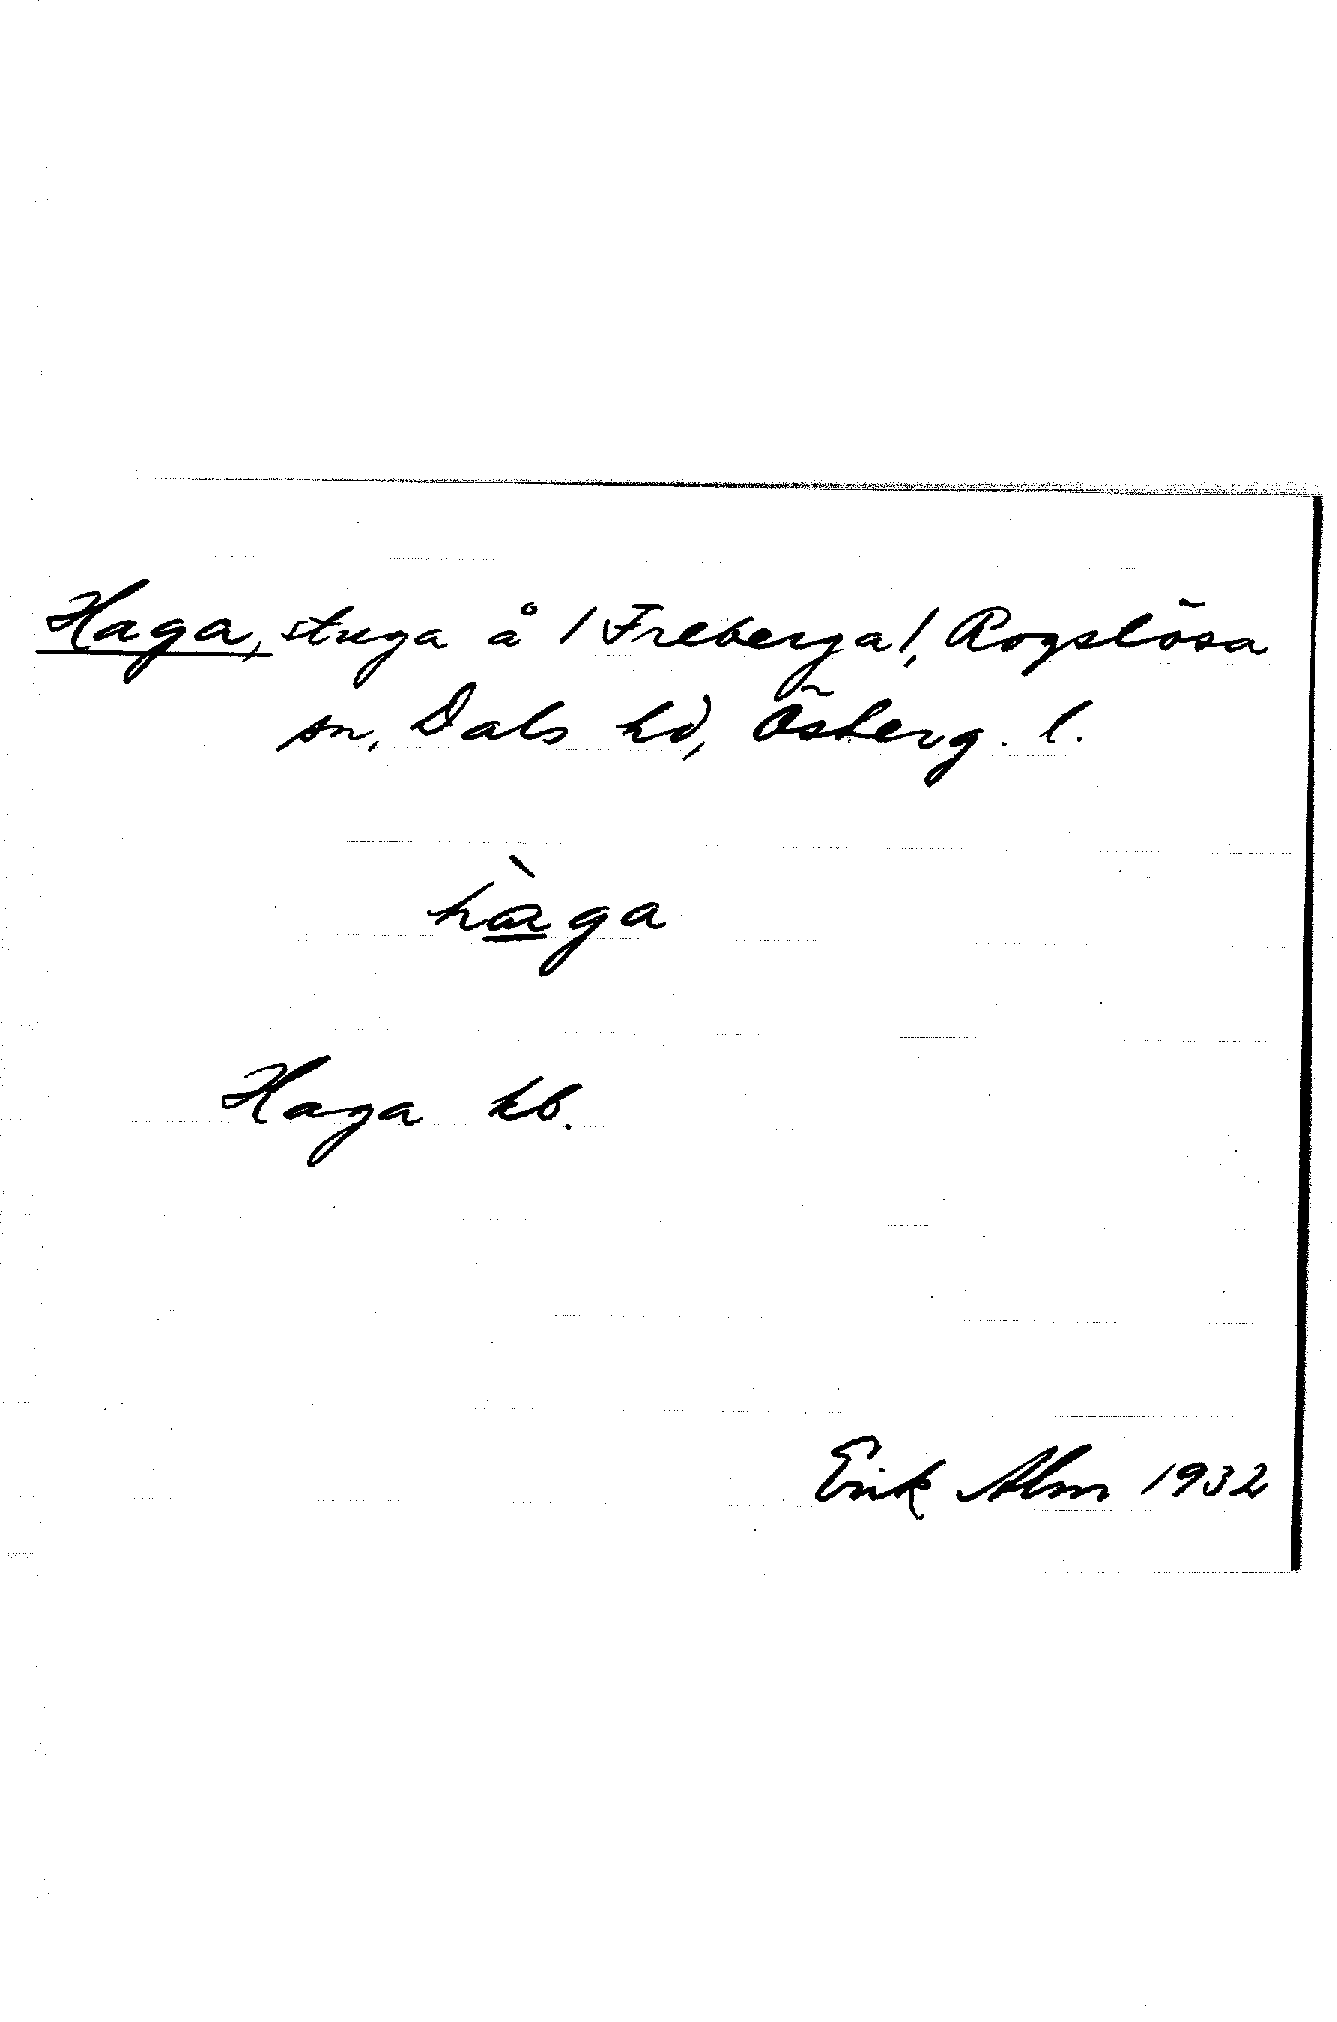 Haga, stuga å /Freberga/, Rogslösa
sn, Dals hd, Österg. l.
hàga
Haga kb.
Erik Alm 1932